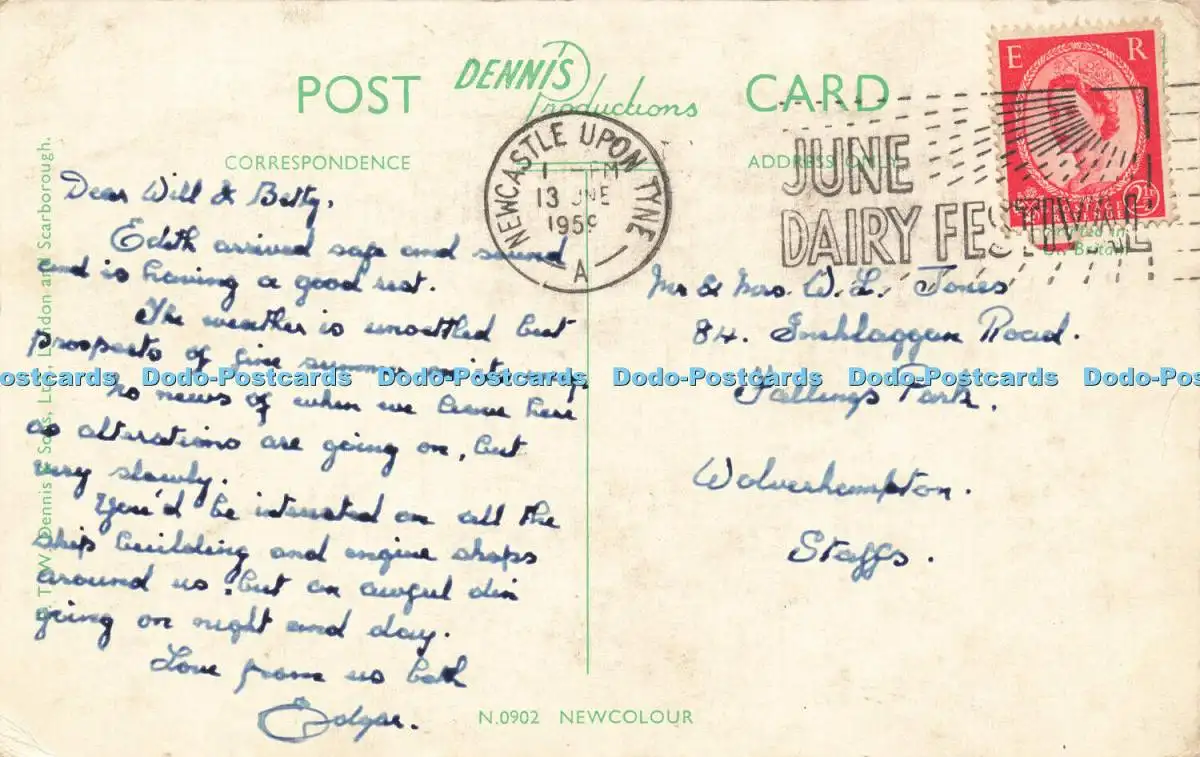 POST DENNIS Productions CARD
CORRESPONDENCE
ADDRESS ONLY
E R
2½
NEWCASTLE UPON TYNE
1 - PM
13 JNE
1959
A
JUNE
DAIRY FESTIVAL
Dear Will & Betty,
Edith arrived safe and sound
and is having a good rest.
The weather is unsettled but
prospects of fine summer
No news of when we leave here
as alterations are going on, but
very slowly.
You'd be interested on all the
ship building and engine shops
around us, but an awful din
going on night and day.
Love from us both
Edgar.
Mr & Mrs. W. L. Jones
84. Inchlaggan Road.
Fallings Park.
Wolverhampton.
Staffs.
Dodo-Postcards Dodo-Postcards Dodo-Postcards Dodo-Postcards Dodo-Postcards Dodo-Postcards
T. W. Dennis & Sons, Ltd., London and Scarborough.
N.0902 NEWCOLOUR